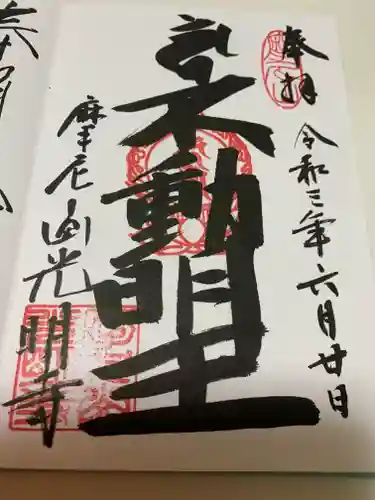 奉拝
令和三年六月廿日
不動明王
摩尼山光明寺